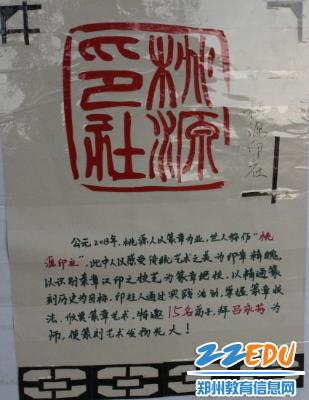 桃源
印社
桃源印社
公元2013年,桃源人以篆章为业,世人称作"桃
源印社",此中人以感受传统艺术之美为印章精魂,
以识别篆章汉印之技艺为篆章绝技,以精通篆
刻历史为目标,印社人通过实践活动,掌握篆技
法,欣赏篆章艺术,特邀15名高手,拜吕永 为
师,使篆刻艺术发扬光大!
22EDU
郑州教育信息网